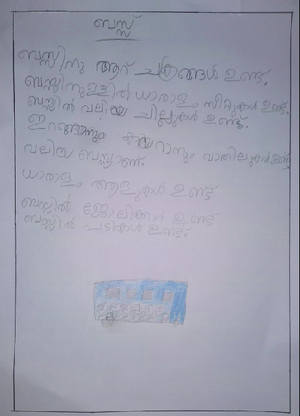 ബസ്സ്
ബസ്സിനു ആറ് ചക്രങ്ങൾ ഉണ്ട്.
ബസ്സിനുള്ളിൽ ധാരാളം സീറ്റുകൾ ഉണ്ട്.
ബസ്സിൽ വലിയ ചില്ലുകൾ ഉണ്ട്.
ഇറങ്ങാനും കയറാനും വാതിലുകൾ ഉണ്ട്
വലിയ ബസ്സാണ്.
ധാരാളം ആളുകൾ ഉണ്ട്
ബസ്സിൽ ജോലിക്കാർ ഉണ്ട്
ബസ്സിൽ പടികൾ ഉണ്ട്.